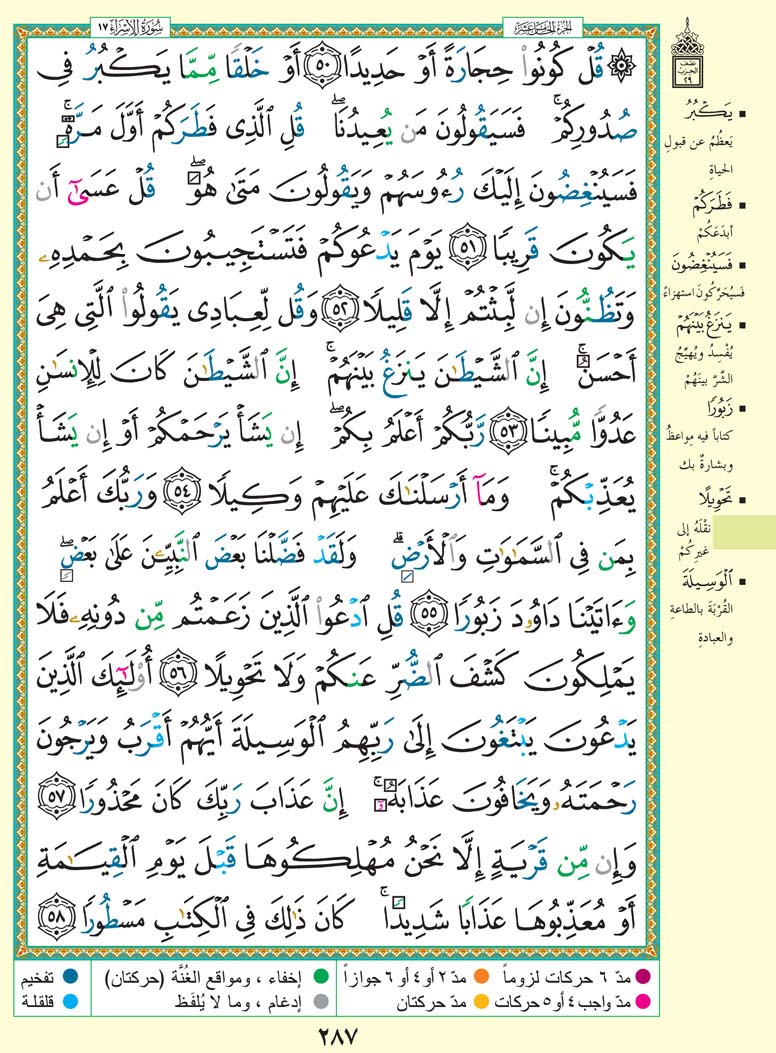 سُورَةُ الإِسْرَاءِ ١٧
الجُزءُ الخَامِسَ عَشَرَ
۞ قُلْ كُونُوا۟ حِجَارَةً أَوْ حَدِيدًا ﴿٥٠﴾ أَوْ خَلْقًا مِّمَّا يَكْبُرُ فِى
صُدُورِكُمْ ۚ فَسَيَقُولُونَ مَن يُعِيدُنَا ۖ قُلِ ٱلَّذِى فَطَرَكُمْ أَوَّلَ مَرَّةٍ ۚ
فَسَيُنْغِضُونَ إِلَيْكَ رُءُوسَهُمْ وَيَقُولُونَ مَتَىٰ هُوَ ۖ قُلْ عَسَىٰٓ أَن
يَكُونَ قَرِيبًا ﴿٥١﴾ يَوْمَ يَدْعُوكُمْ فَتَسْتَجِيبُونَ بِحَمْدِهِۦ
وَتَظُنُّونَ إِن لَّبِثْتُمْ إِلَّا قَلِيلًا ﴿٥٢﴾ وَقُل لِّعِبَادِى يَقُولُوا۟ ٱلَّتِى هِىَ
أَحْسَنُ ۚ إِنَّ ٱلشَّيْطَـٰنَ يَنزَغُ بَيْنَهُمْ ۚ إِنَّ ٱلشَّيْطَـٰنَ كَانَ لِلْإِنسَـٰنِ
عَدُوًّا مُّبِينًا ﴿٥٣﴾ رَّبُّكُمْ أَعْلَمُ بِكُمْ ۖ إِن يَشَأْ يَرْحَمْكُمْ أَوْ إِن يَشَأْ
يُعَذِّبْكُمْ ۚ وَمَآ أَرْسَلْنَـٰكَ عَلَيْهِمْ وَكِيلًا ﴿٥٤﴾ وَرَبُّكَ أَعْلَمُ
بِمَن فِى ٱلسَّمَـٰوَٰتِ وَٱلْأَرْضِ ۗ وَلَقَدْ فَضَّلْنَا بَعْضَ ٱلنَّبِيِّـۧنَ عَلَىٰ بَعْضٍ ۖ
وَءَاتَيْنَا دَاوُۥدَ زَبُورًا ﴿٥٥﴾ قُلِ ٱدْعُوا۟ ٱلَّذِينَ زَعَمْتُم مِّن دُونِهِۦ فَلَا
يَمْلِكُونَ كَشْفَ ٱلضُّرِّ عَنكُمْ وَلَا تَحْوِيلًا ﴿٥٦﴾ أُو۟لَـٰٓئِكَ ٱلَّذِينَ
يَدْعُونَ يَبْتَغُونَ إِلَىٰ رَبِّهِمُ ٱلْوَسِيلَةَ أَيُّهُمْ أَقْرَبُ وَيَرْجُونَ
رَحْمَتَهُۥ وَيَخَافُونَ عَذَابَهُۥٓ ۚ إِنَّ عَذَابَ رَبِّكَ كَانَ مَحْذُورًا ﴿٥٧﴾
وَإِن مِّن قَرْيَةٍ إِلَّا نَحْنُ مُهْلِكُوهَا قَبْلَ يَوْمِ ٱلْقِيَـٰمَةِ
أَوْ مُعَذِّبُوهَا عَذَابًا شَدِيدًا ۚ كَانَ ذَٰلِكَ فِى ٱلْكِتَـٰبِ مَسْطُورًا ﴿٥٨﴾
نصف
الحزب
٢٩
▪ يَكْبُرُ
يَعظُمُ عن قبولِ
الحياةِ
▪ فَطَرَكُمْ
أبدَعَكُمْ
▪ فَسَيُنْغِضُونَ
فَسيُحَرِّكونَ استهزاءً
▪ يَنزَغُ بَيْنَهُمْ
يُفْسِدُ ويُهيِّجُ
الشَّرَّ بينَهُمْ
▪ زَبُورًا
كتاباً فيه مواعظُ
وبشارةٌ بك
▪ تَحْوِيلًا
نقْلَهُ إلى
غيرِكُمْ
▪ ٱلْوَسِيلَةَ
القُرْبَةَ بالطاعةِ
والعبادةِ
مدّ ٦ حركات لزوماً مدّ ٢ أو ٤ أو ٦ جوازاً إخفاء ، ومواقع الغُنَّة (حركتان) تفخيم
مدّ واجب ٤ أو ٥ حركات مدّ حركتان إدغام ، وما لا يُلفَظ قلقلة
٢٨٧